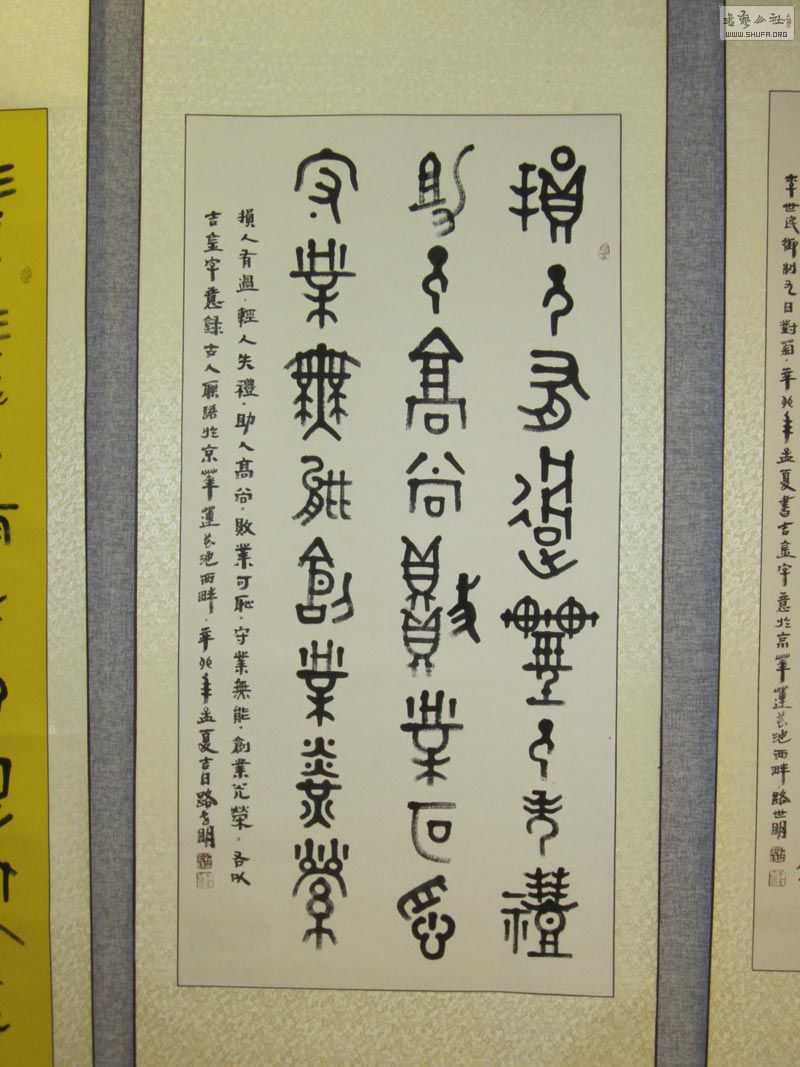 书艺公社
WWW.SHUFA.ORG
李世民御制九日對菊。辛卯年孟夏書吉金字意於京華蓮花池西畔路世明
損人有過輕人失禮
助人高尚敗業可恥
守業無能創業光榮
損人有過。輕人失禮。助人高尚。敗業可恥。守業無能。創業光榮。吾以
吉金字意録古人聯語於京華蓮花池西畔。辛卯年孟夏吉日路世明